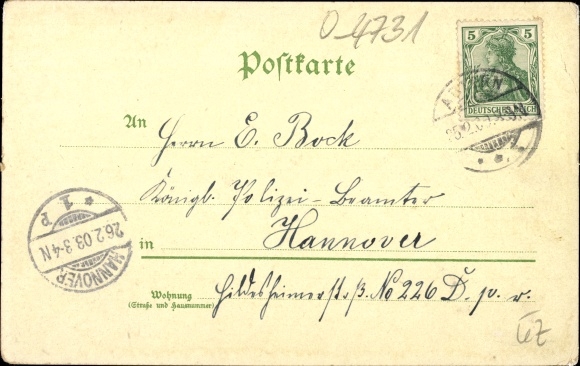 O-4731
Postkarte
5 5
DEUTSCHES REICH
An
Herrn E. Bock
Königl. Polizei-Beamter
in Hannover
Wohnung
(Straße und Hausnummer)
Hildesheimerstrß. No 226 D. p. r.
HANNOVER
26.2.03.3-4N
* 1 P